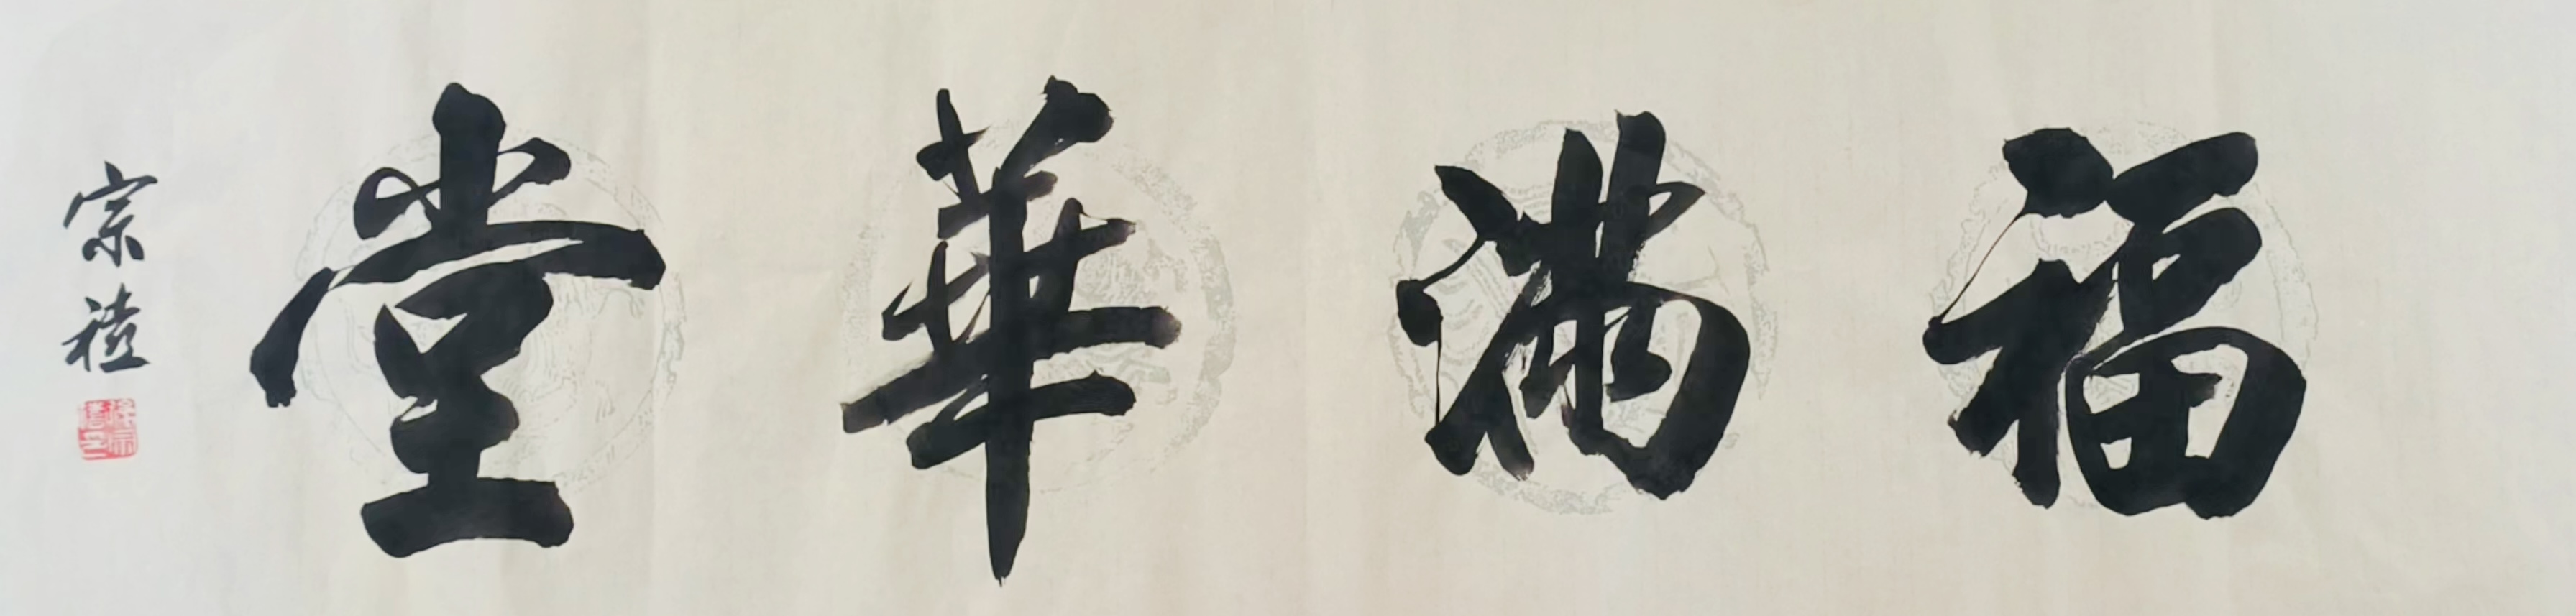 福滿華堂
宗禮